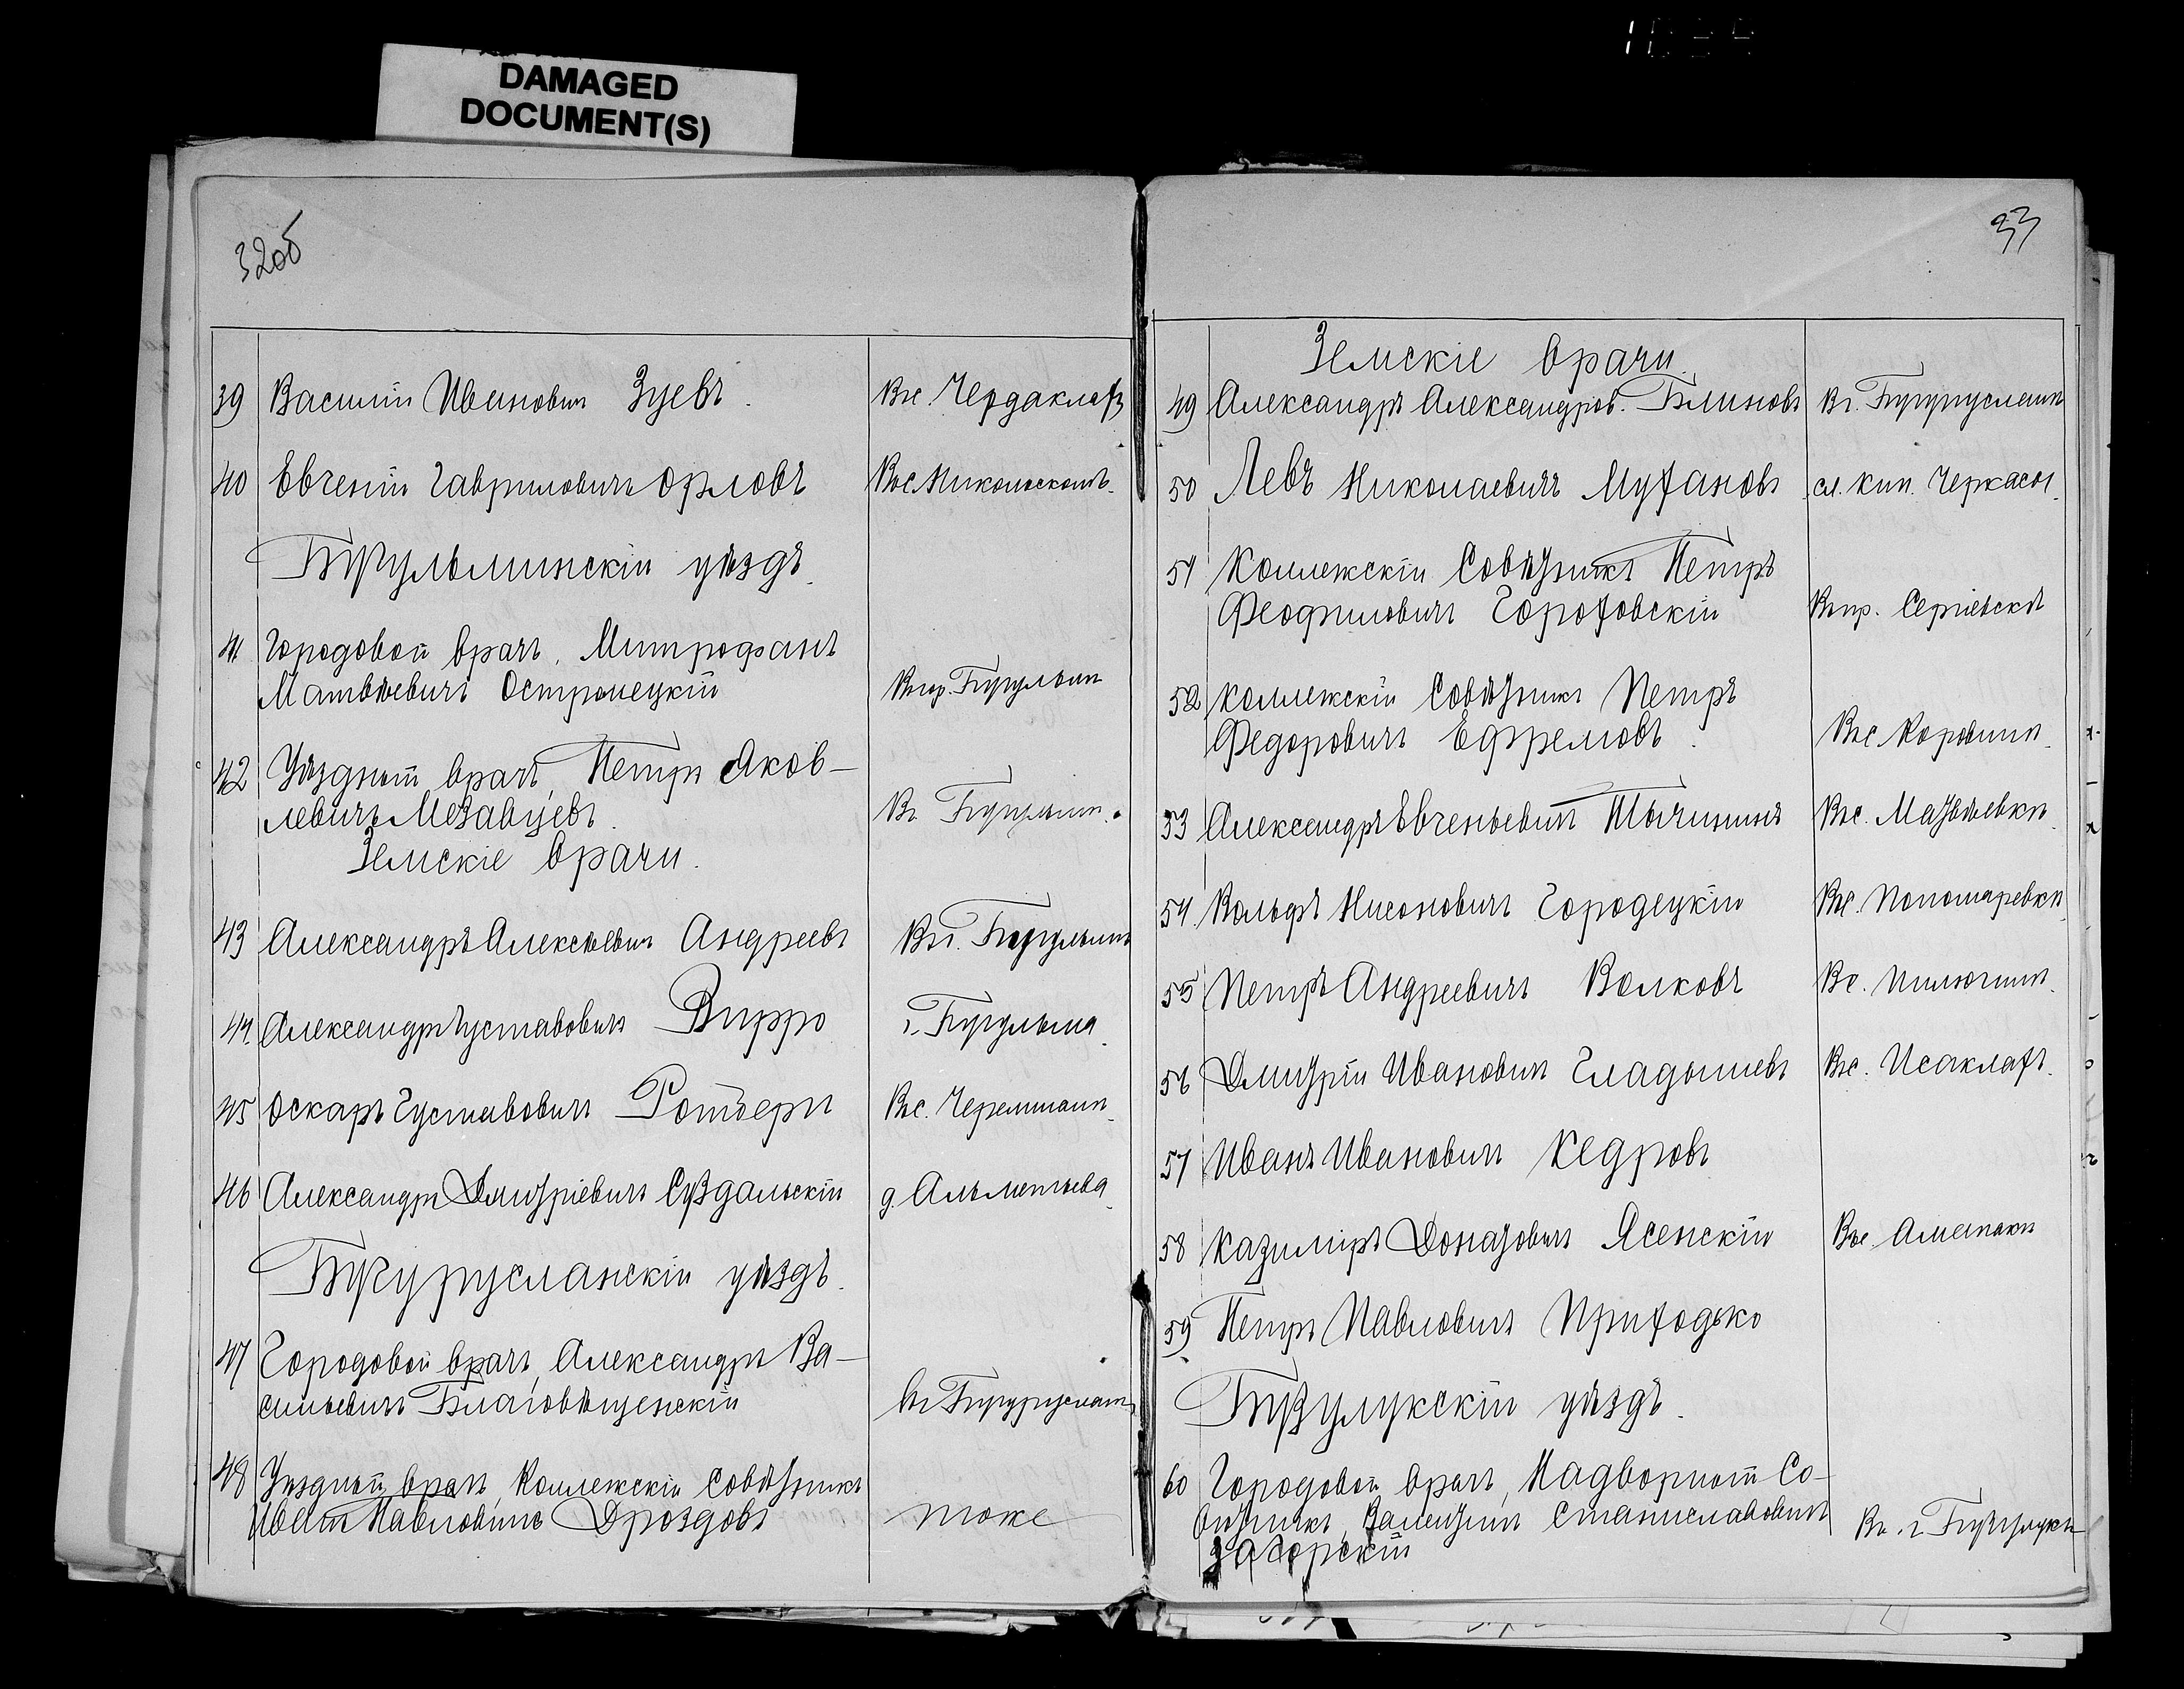 DAMAGED
DOCUMENT(S)
32об
39 Василій Ивановичъ Зуевъ. Въ с. Чердаклахъ
40 Евгеній Гавриловичъ Орловъ Въ с. Никольскомъ.
Бугульминскій уѣздъ.
41. Городовой врачъ, Митрофанъ
Матвѣевичъ Островецкій Въ гор. Бугульмѣ
42 Уѣздный врачъ, Петръ Яков-
левичъ Мезавцевъ. Въ Бугульмѣ.
Земскіе врачи.
43 Александръ Алексѣевичъ Андреевъ Въ г. Бугульмѣ
44. Александръ Густавовичъ Вирро г. Бугульма.
45 Оскаръ Густавовичъ Ротбергъ Въ с. Черемшанѣ.
46 Александръ Дмитріевичъ Суздальскій д. Альметьева.
Бугурусланскій уѣздъ.
47 Городовой врачъ, Александръ Ва-
сильевичъ Благовѣщенскій Въ г. Бугурусланѣ
48 Уѣздный врачъ, Коллежскій Совѣтникъ
Иванъ Павловичъ Дроздовъ тоже
33
Земскіе врачи.
49 Александръ Александров. Блиновъ Въ г. Бугурусланѣ
50 Левъ Николаевичъ Мухановъ сл. Кин. Черкасы.
51 Коллежскій Совѣтникъ Петръ
Феофиловичъ Гороховскій Въ пр. Сергіевскѣ
52 Коллежскій Совѣтникъ Петръ
Федоровичъ Ефремовъ. Въ с. Коровинѣ.
53 Александръ Евгеньевичъ Тычининъ Въ с. Матвѣевкѣ.
54. Вольфъ Нисоновичъ Городецкій Въ с. Пономаревкѣ.
55 Петръ Андреевичъ Волковъ В с. Пилюгинѣ.
56 Дмитрій Ивановичъ Гладышевъ Въ с. Исаклахъ.
57 Иванъ Ивановичъ Кедровъ
58 Казиміръ Донатовичъ Ясенскій Въ с. Аманакѣ
59 Петръ Павловичъ Приходько
Бузулукскій уѣздъ.
60 Городовой врачъ, Надворный Со-
вѣтникъ, Валентинъ Станиславовичъ Въ г. Бузулукѣ
Загорскій